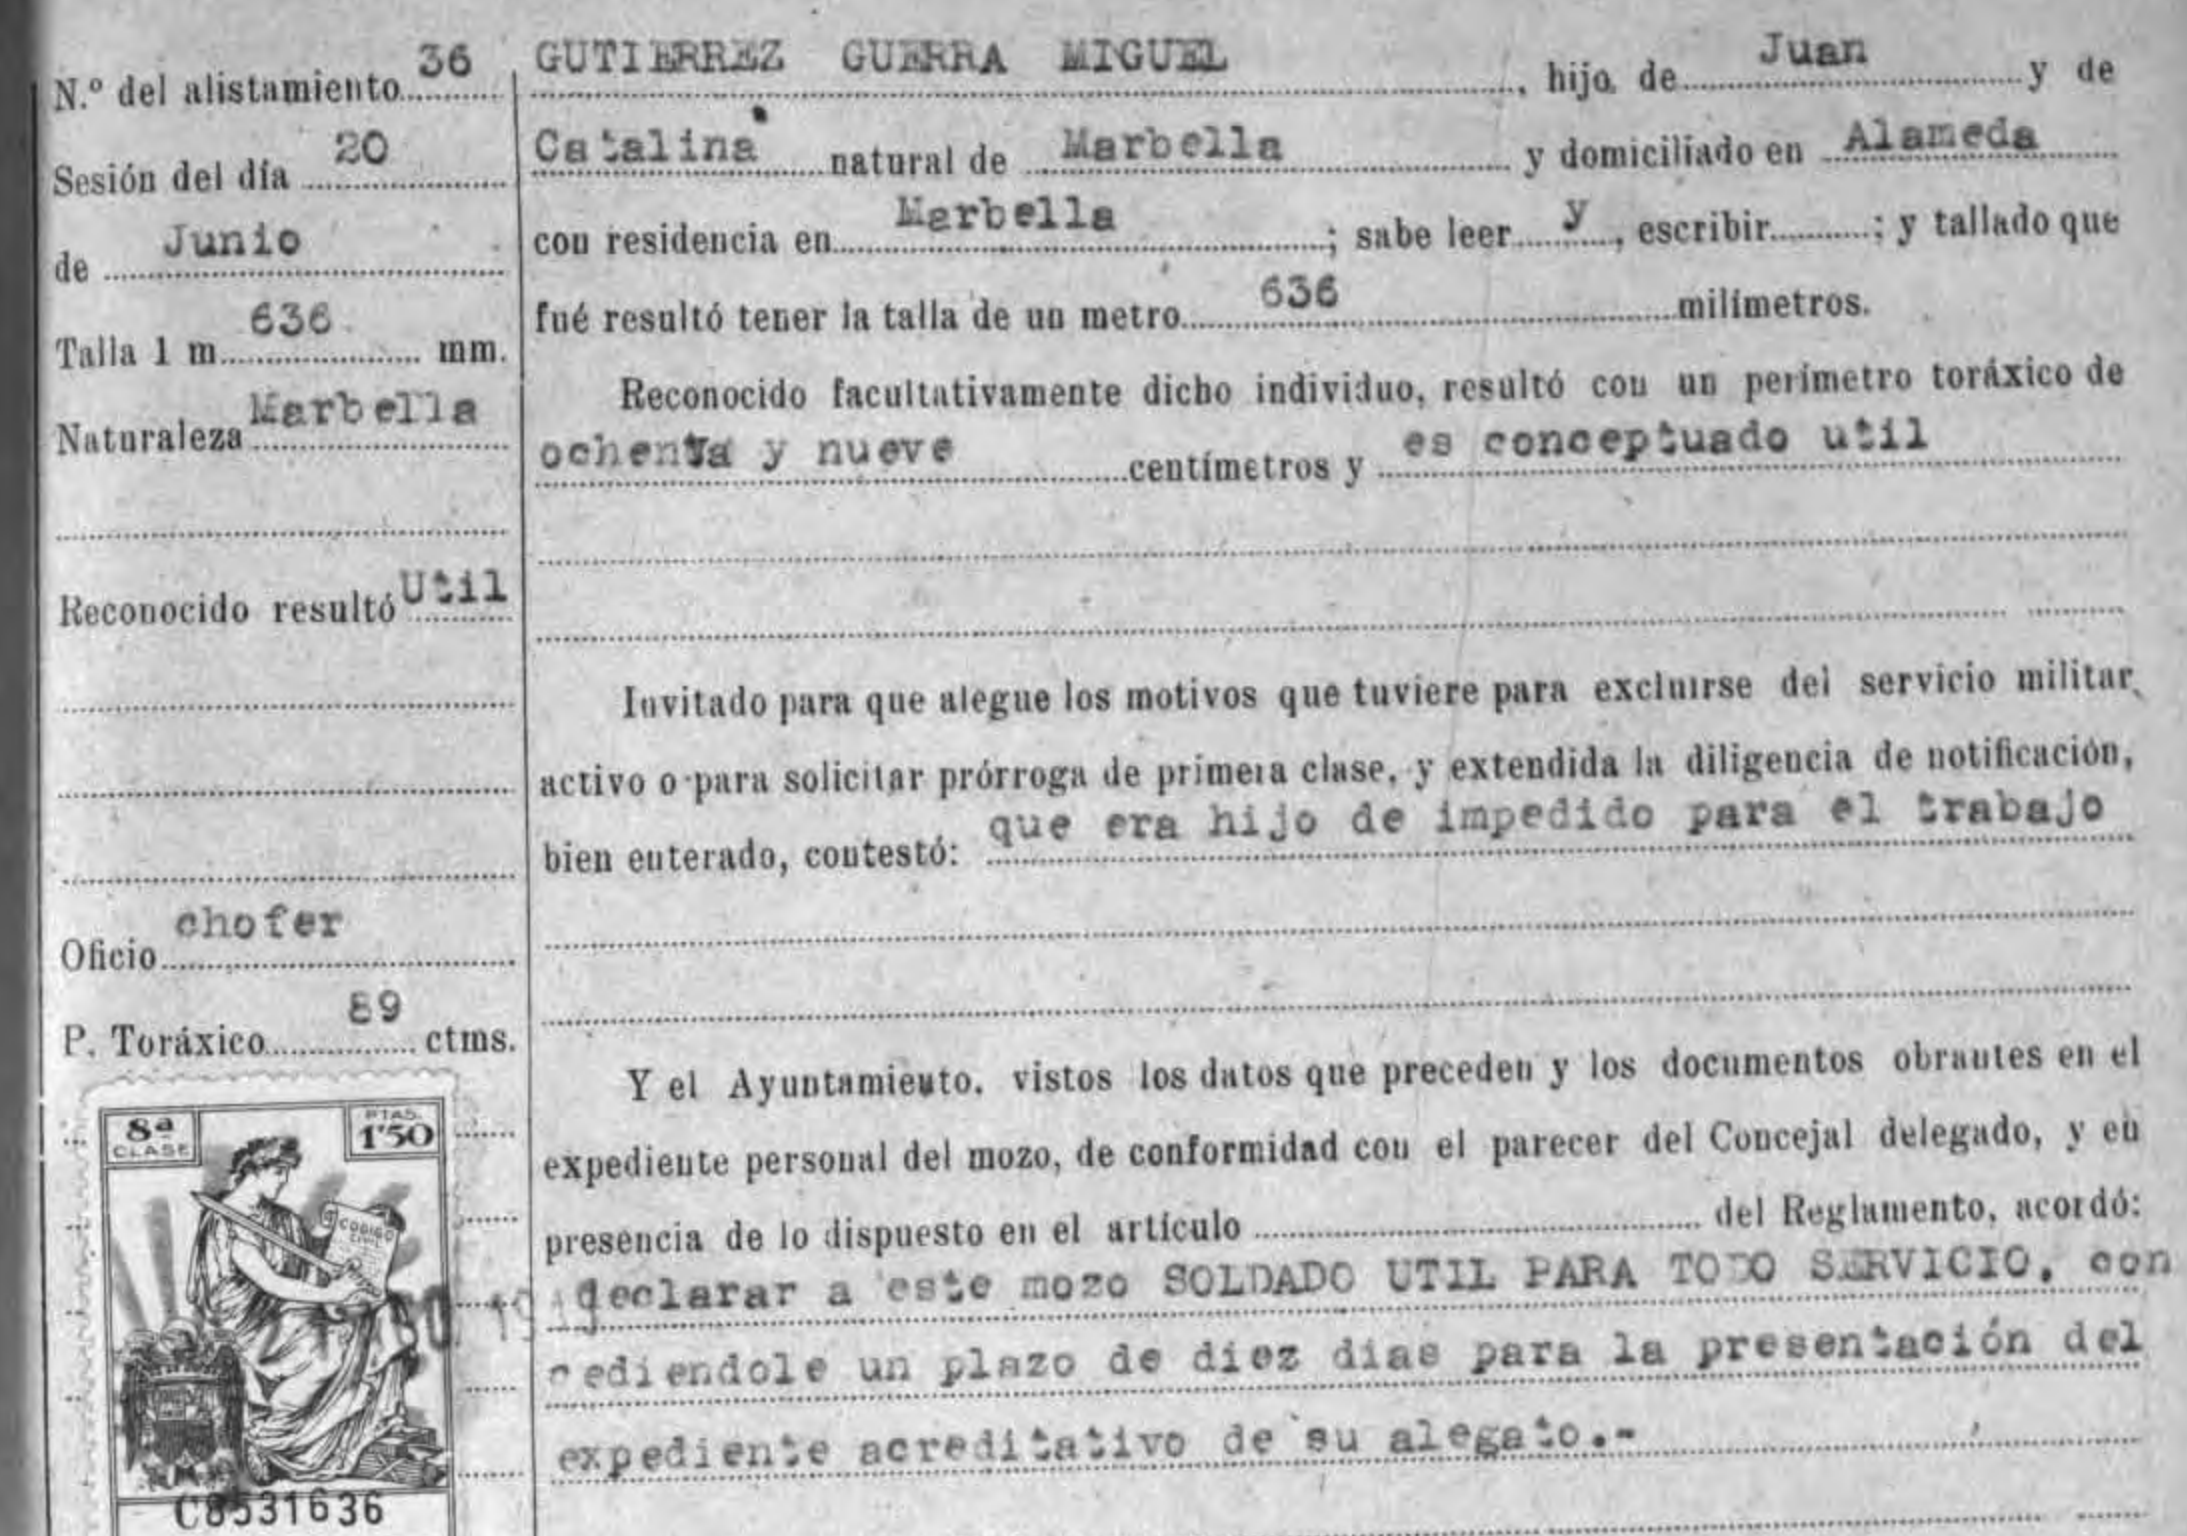 N.º del alistamiento 36
Sesión del día 20
de Junio
Talla 1 m. 636 mm.
Naturaleza Marbella
Reconocido resultó Util
Oficio chofer
P. Toráxico 89 ctms.
8ª CLASE
PTAS. 1'50
CODIGO CIVIL
C8531636
GUTIERREZ GUERRA MIGUEL, hijo de Juan y de
Catalina natural de Marbella y domiciliado en Alameda
con residencia en Marbella; sabe leer y, escribir; y tallado que
fué resultó tener la talla de un metro 636 milímetros.
Reconocido facultativamente dicho individuo, resultó con un perímetro toráxico de
ochenta y nueve centímetros y es conceptuado util
Invitado para que alegue los motivos que tuviere para excluirse del servicio militar
activo o para solicitar prórroga de primera clase, y extendida la diligencia de notificación,
bien enterado, contestó: que era hijo de impedido para el trabajo
Y el Ayuntamiento, vistos los datos que preceden y los documentos obrantes en el
expediente personal del mozo, de conformidad con el parecer del Concejal delegado, y en
presencia de lo dispuesto en el artículo del Reglamento, acordó:
declarar a este mozo SOLDADO UTIL PARA TODO SERVICIO, con
cediendole un plazo de diez dias para la presentación del
expediente acreditativo de su alegato.-